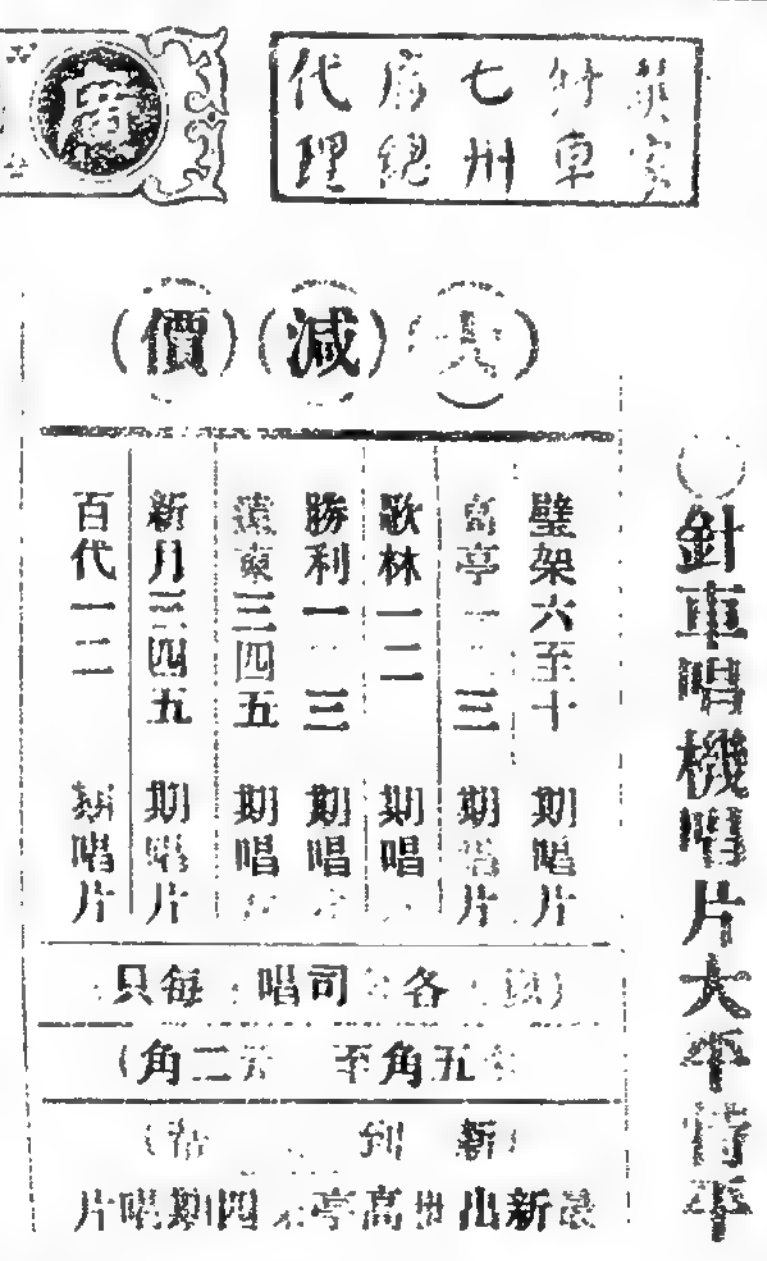 針車
七州
府總
代理
廣
大減價
針車唱機唱片大平平
璧架六至十期唱片
高亭一二三期唱片
歌林一二期唱
勝利一二三期唱
遠東三四五期唱
新月三四五期唱片
百代一二期唱片
各司唱每只
五角至二角
新到
最新出世高亭四期唱片